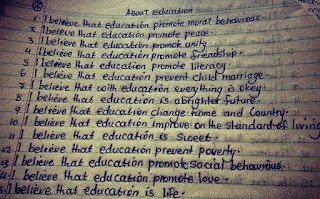 About Education
1. I believe that education promote moral behavious.
2. I believe that education promote peace.
3. I believe that education promot unity.
4. I believe that education promote friendship.
5. I believe that education promote literacy.
6. I believe that education prevent child marriage.
7. I believe that with education everything is okey.
8. I believe that education is abrighter future.
9. I believe that education change home and country.
10. I believe that education improve on the standard of living
11. I believe that education is sweet.
12. I believe that education prevent poverty.
13. I believe that education promot social behavious.
14. I believe that education promote love.
I believe that education is life.